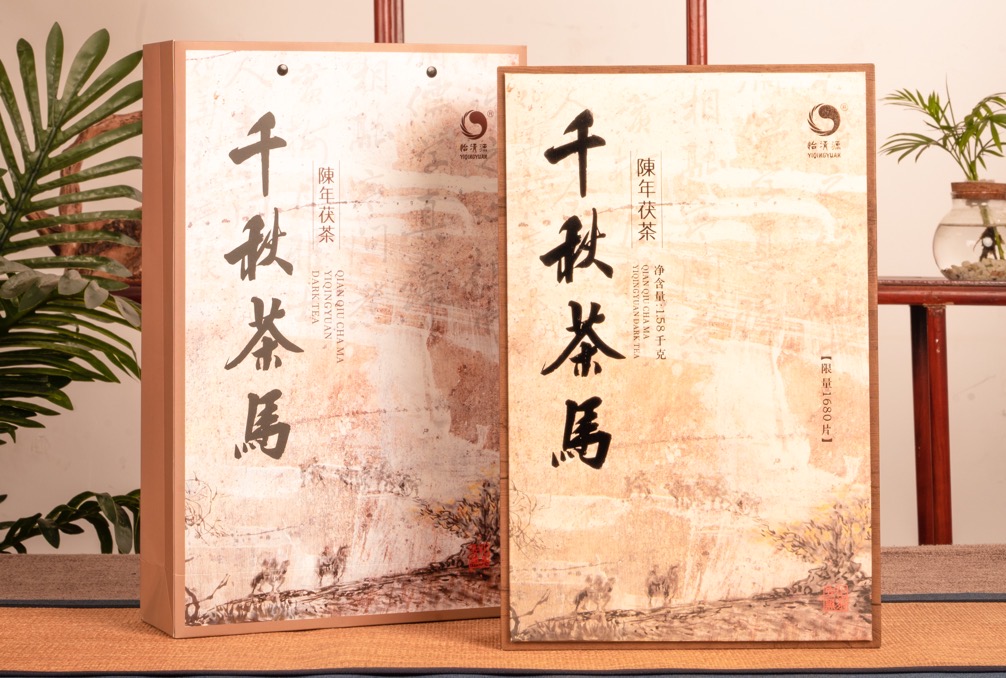 千秋茶馬
陳年茯茶
QIAN QIU CHA MA
YIQINGYUAN
DARK TEA
怡清源
YIQINGYUAN
®
千秋茶馬
陳年茯茶
净含量:1.58千克
QIAN QIU CHA MA
YIQINGYUAN DARK TEA
怡清源
YIQINGYUAN
®
【限量1680片】